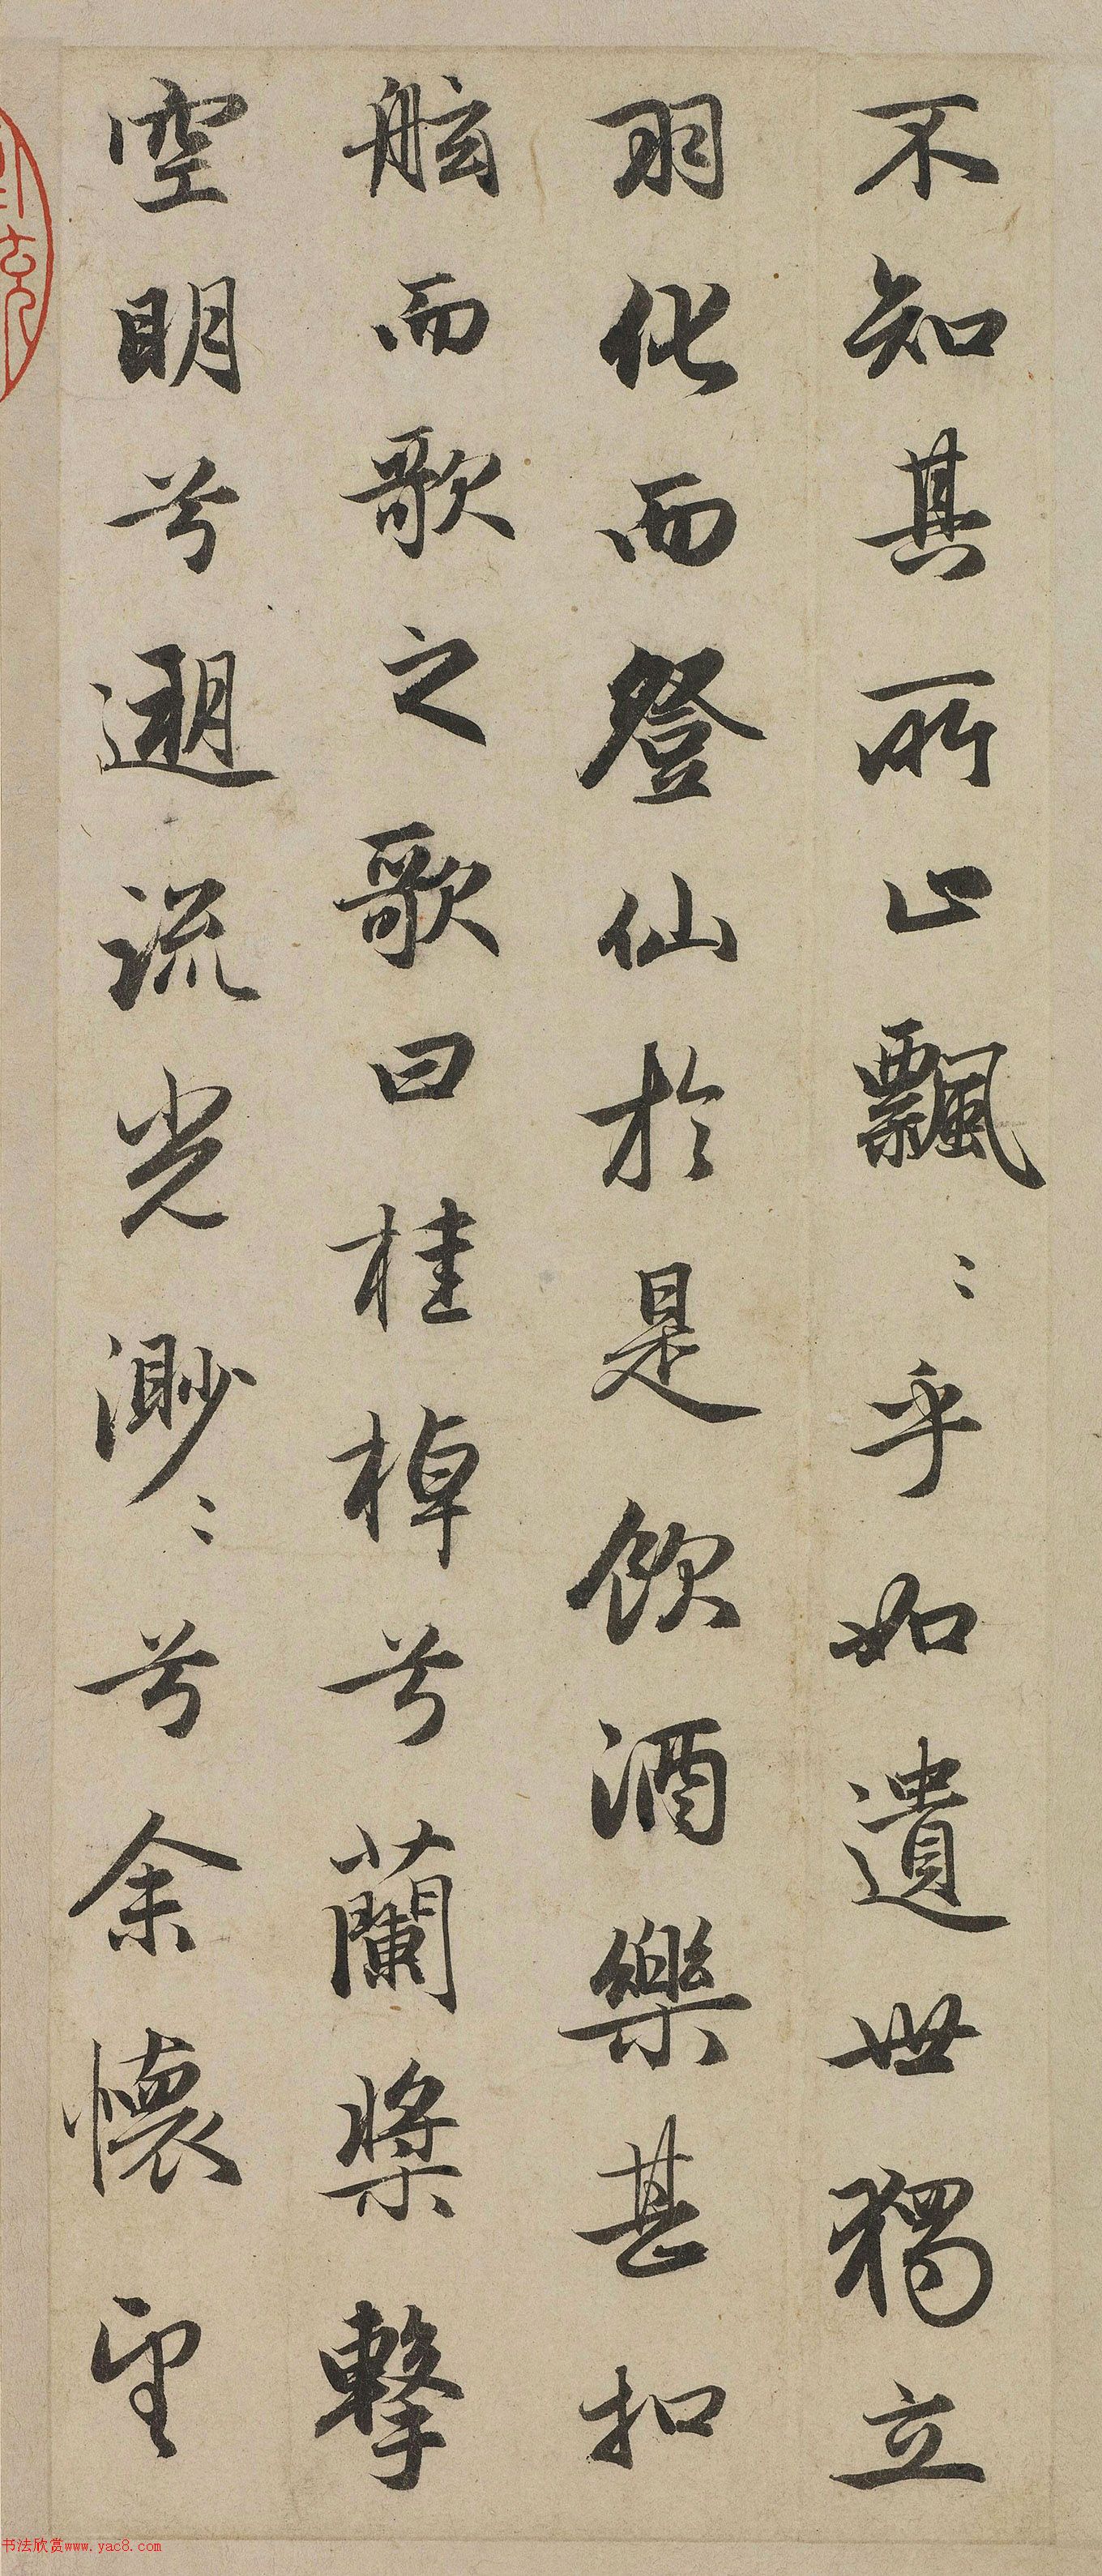 不知其所止飄〻乎如遺世獨立
羽化而登仙於是飲酒樂甚扣
舷而歌之歌曰桂棹兮蘭槳擊
空明兮遡流光渺〻兮余懷望
书法欣赏www.yac8.com